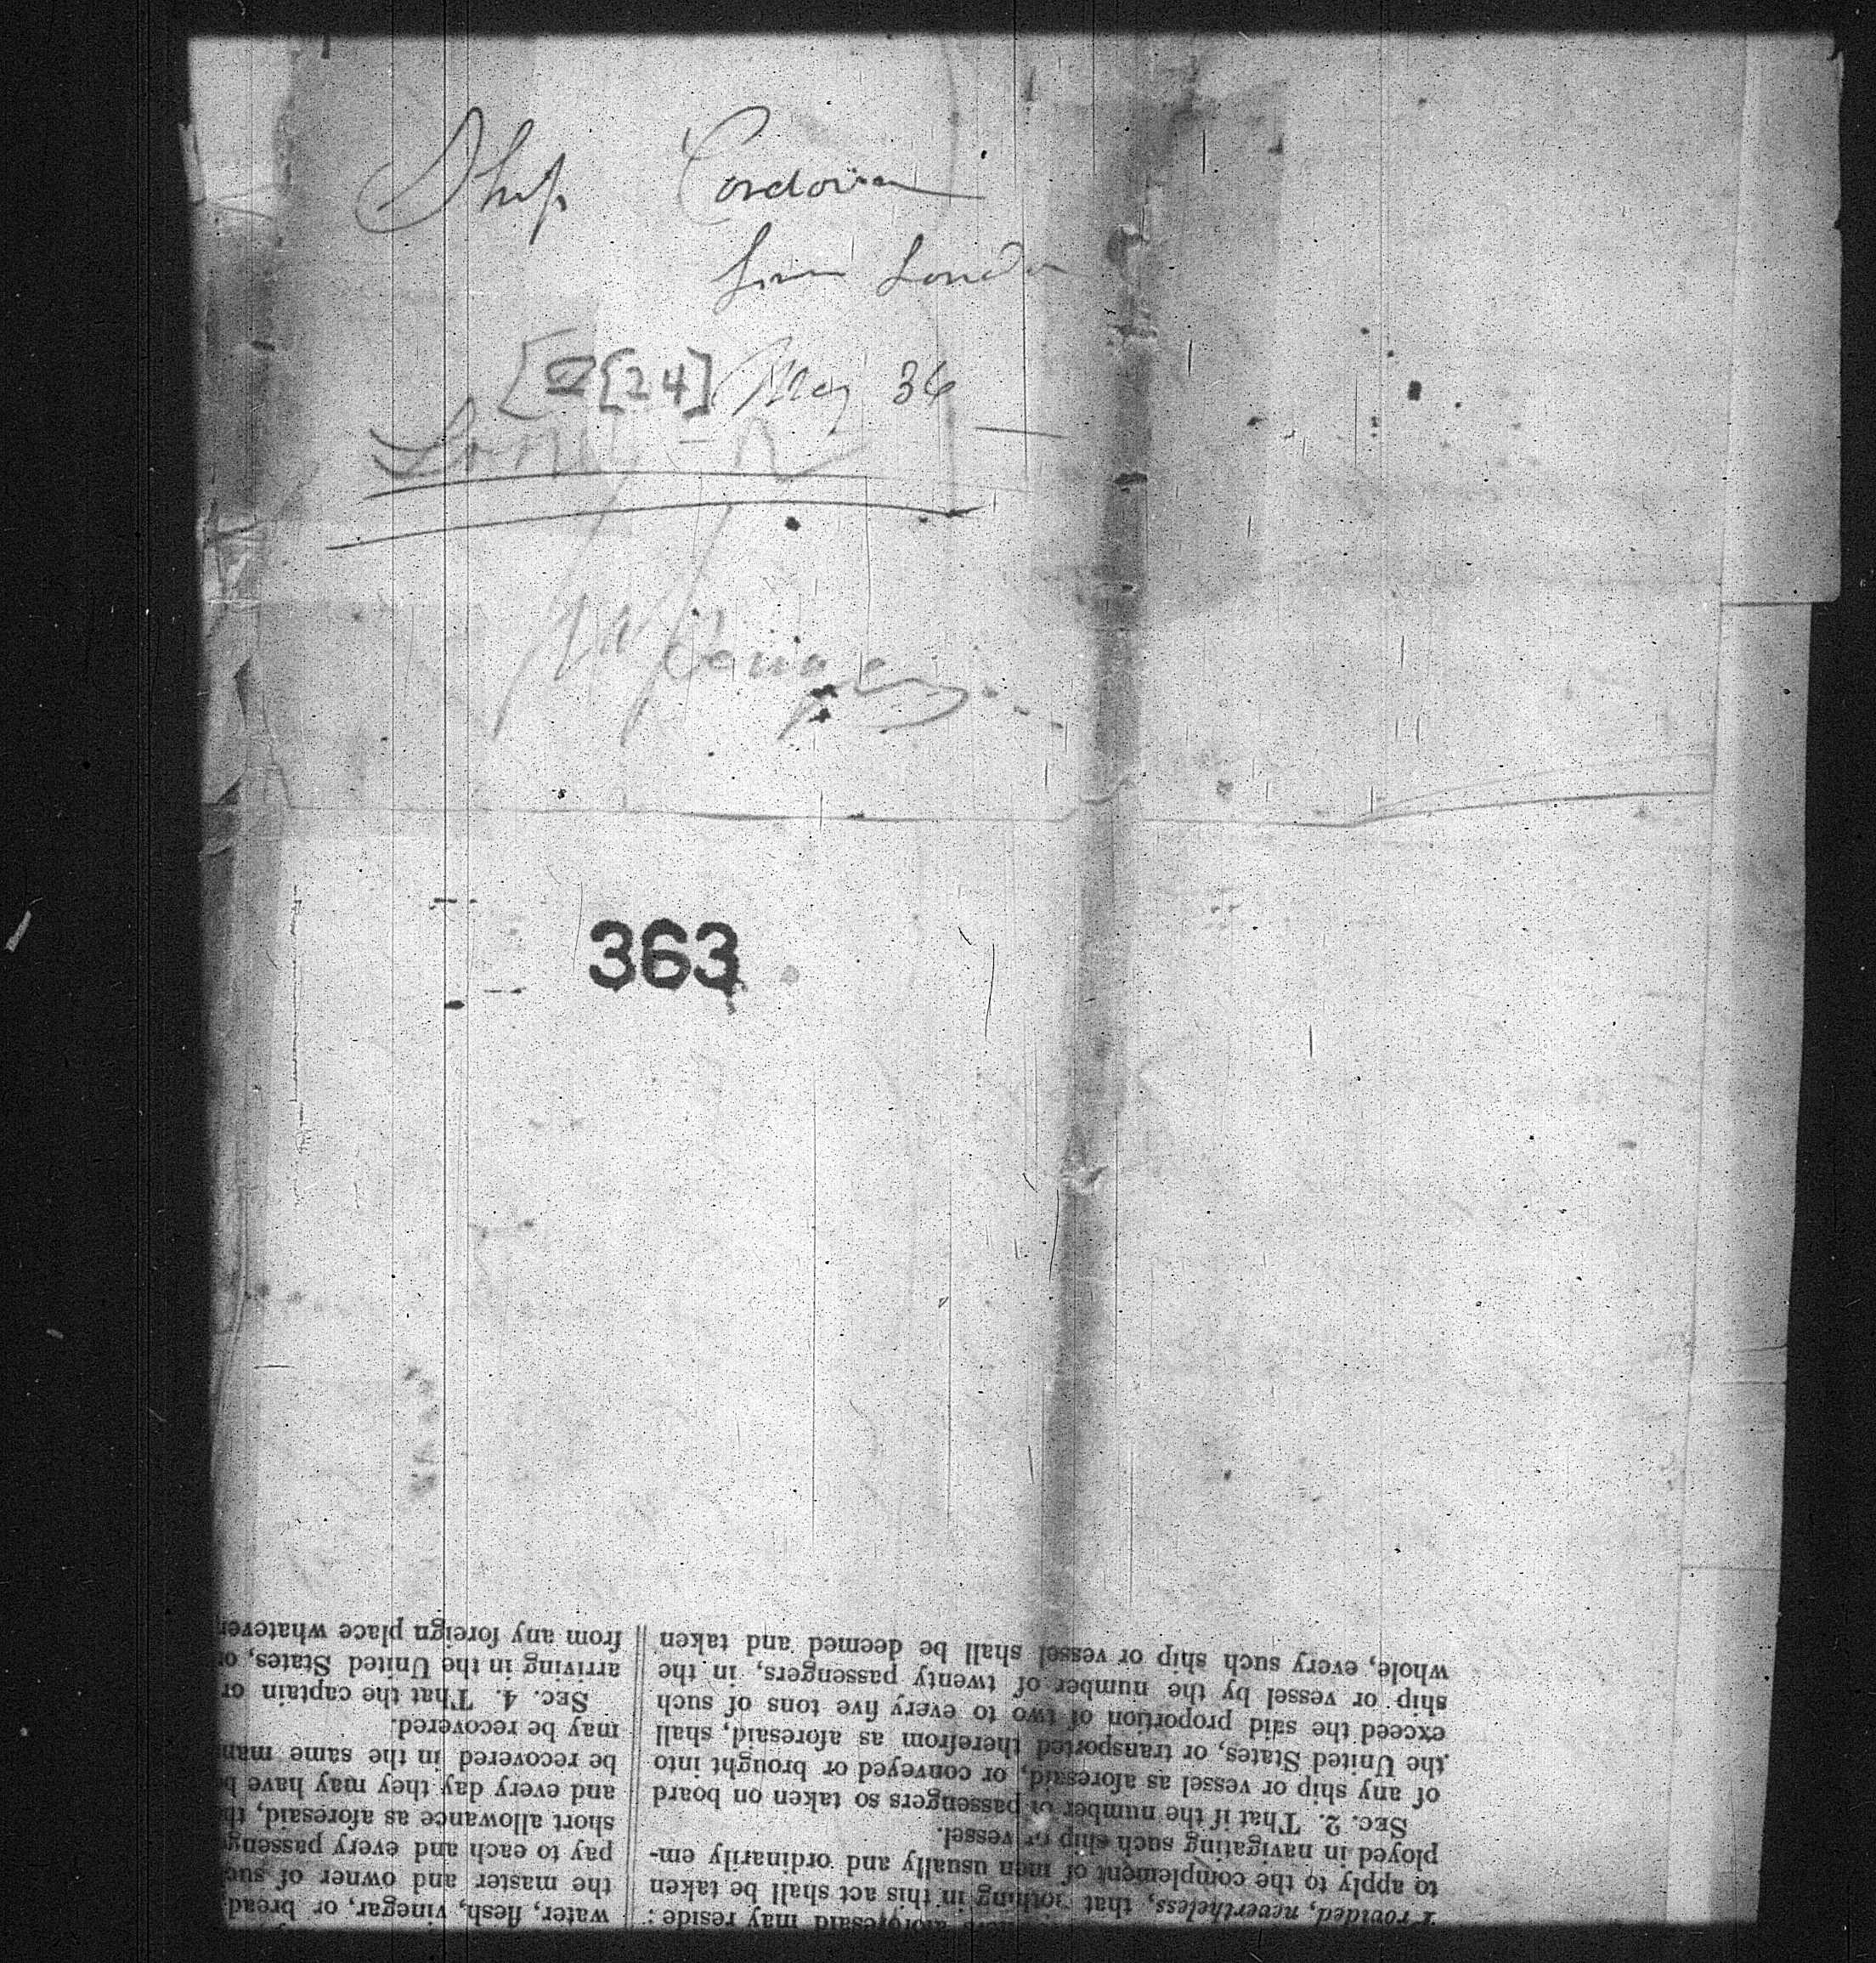 Ship Cordova
from London
[24] May 36
363
Provided, nevertheless, that nothing in this act shall be taken
to apply to the complement of men usually and ordinarily em-
ployed in navigating such ship or vessel.
SEC. 2. That if the number of passengers so taken on board
of any ship or vessel as aforesaid, or conveyed or brought into
the United States, or transported therefrom as aforesaid, shall
exceed the said proportion of two to every five tons of such
ship or vessel by the number of twenty passengers, in the
whole, every such ship or vessel shall be deemed and taken
water, flesh, vinegar, or bread
the master and owner of such
pay to each and every passeng
short allowance as aforesaid, th
and every day they may have b
be recovered in the same man
may be recovered.
SEC. 4. That the captain or
arriving in the United States, or
from any foreign place whatever